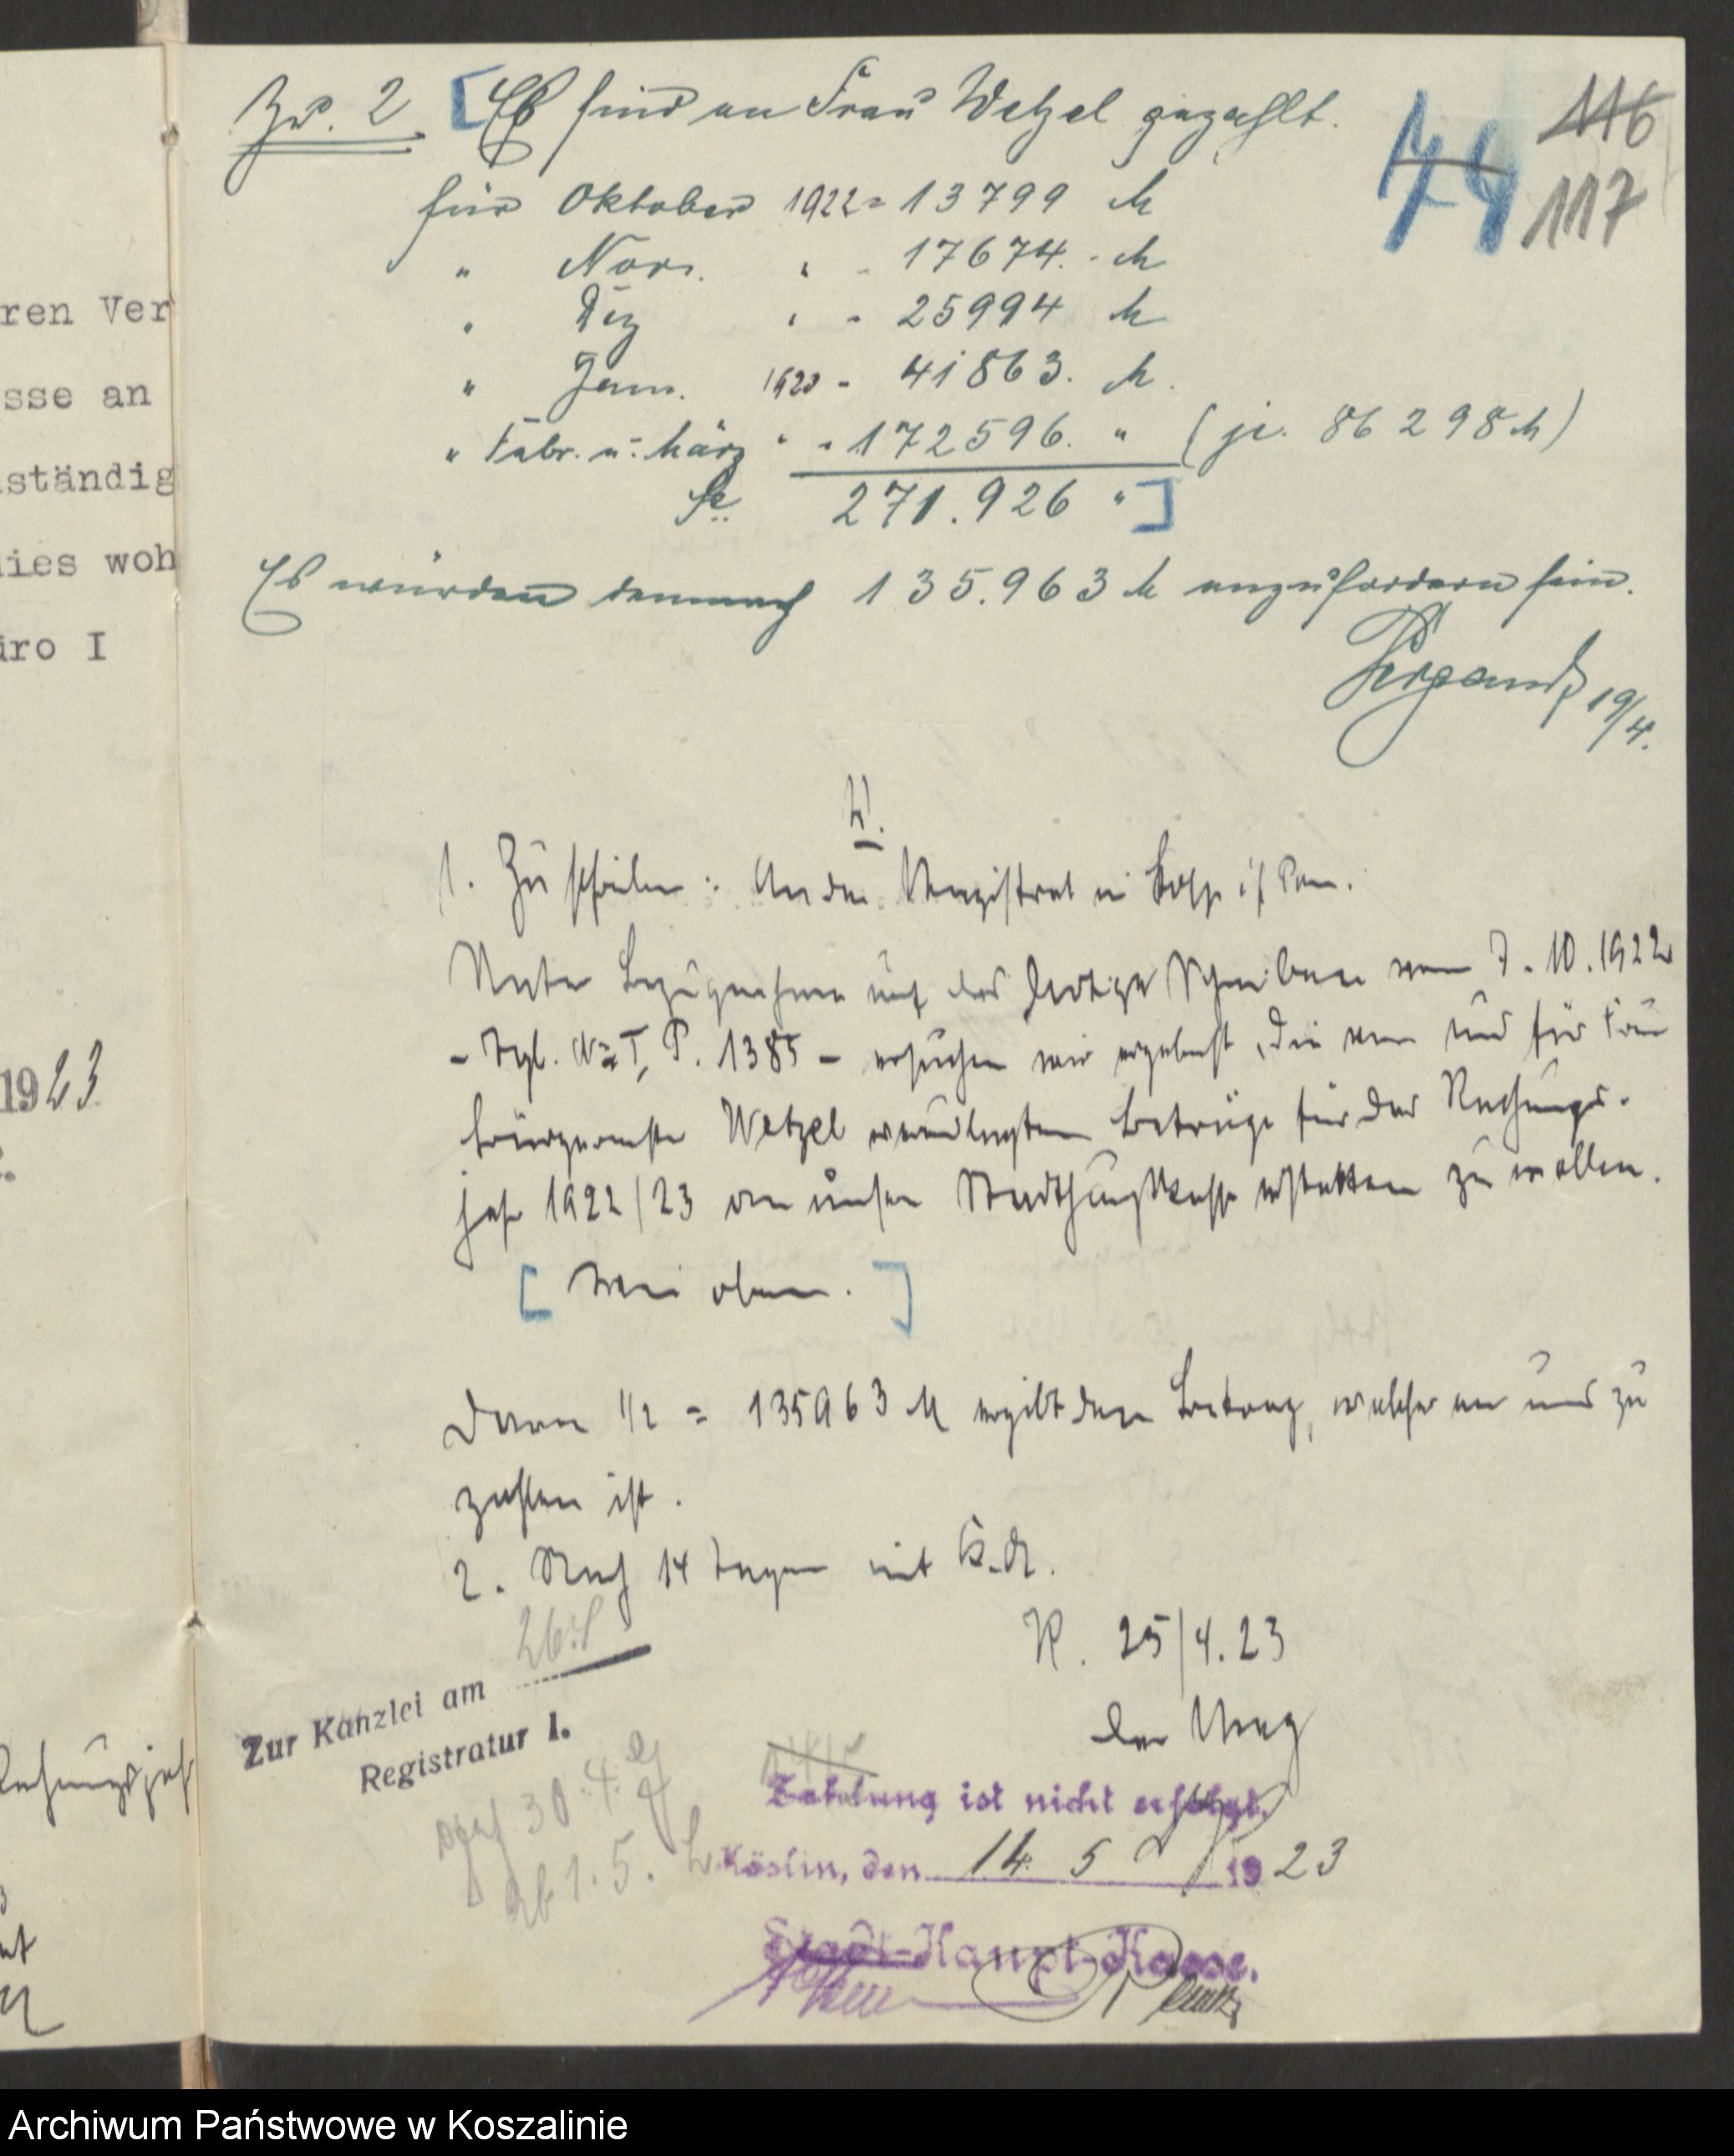 Zu. 2 [Es sind an Frau Wetzel gezahlt.
116
74 117
für Oktober 1922 = 13799 M
" Nov. " - 17674. - M
" Dez " - 25994 M
" Jann. 1923 - 41863. M.
" Febr. u. März " - 172596. " (je. 86298 M)
Se 271.926 " ]
Es würden demnach 135.963 M anzufordern sein.
19/4.
1. Zu schreiben: An den Magistrat in i/ Pom.
Unter Bezugnahme auf das dortige Schreiben vom 7.10.1922
- Tgl. No I, P. 1385 - ersuchen wir ergebenst, die von uns für Frau
Bürgermstr Wetzel verauslagten Beträge für das Rechnungs-
jahr 1922/23 an unsere Stadthauptkasse erstatten zu wollen.
[ Wie oben. ]
Davon 1/2 = 135963 M ergibt den Betrag, welcher an uns zu
zahlen ist.
2. Nach 14 Tagen mit
K. 25/4.23
Der Mag
26/4
Zur Kanzlei am
Registratur I.
30.4.
ab 1.5.
Zahlung ist nicht erfolgt.
Köslin, den 14. 5 1923
Stadt-Haupt-Kasse.
ren Ver
sse an
ständig
dies woh
üro I
1923
Rechnungsjah
Archiwum Państwowe w Koszalinie